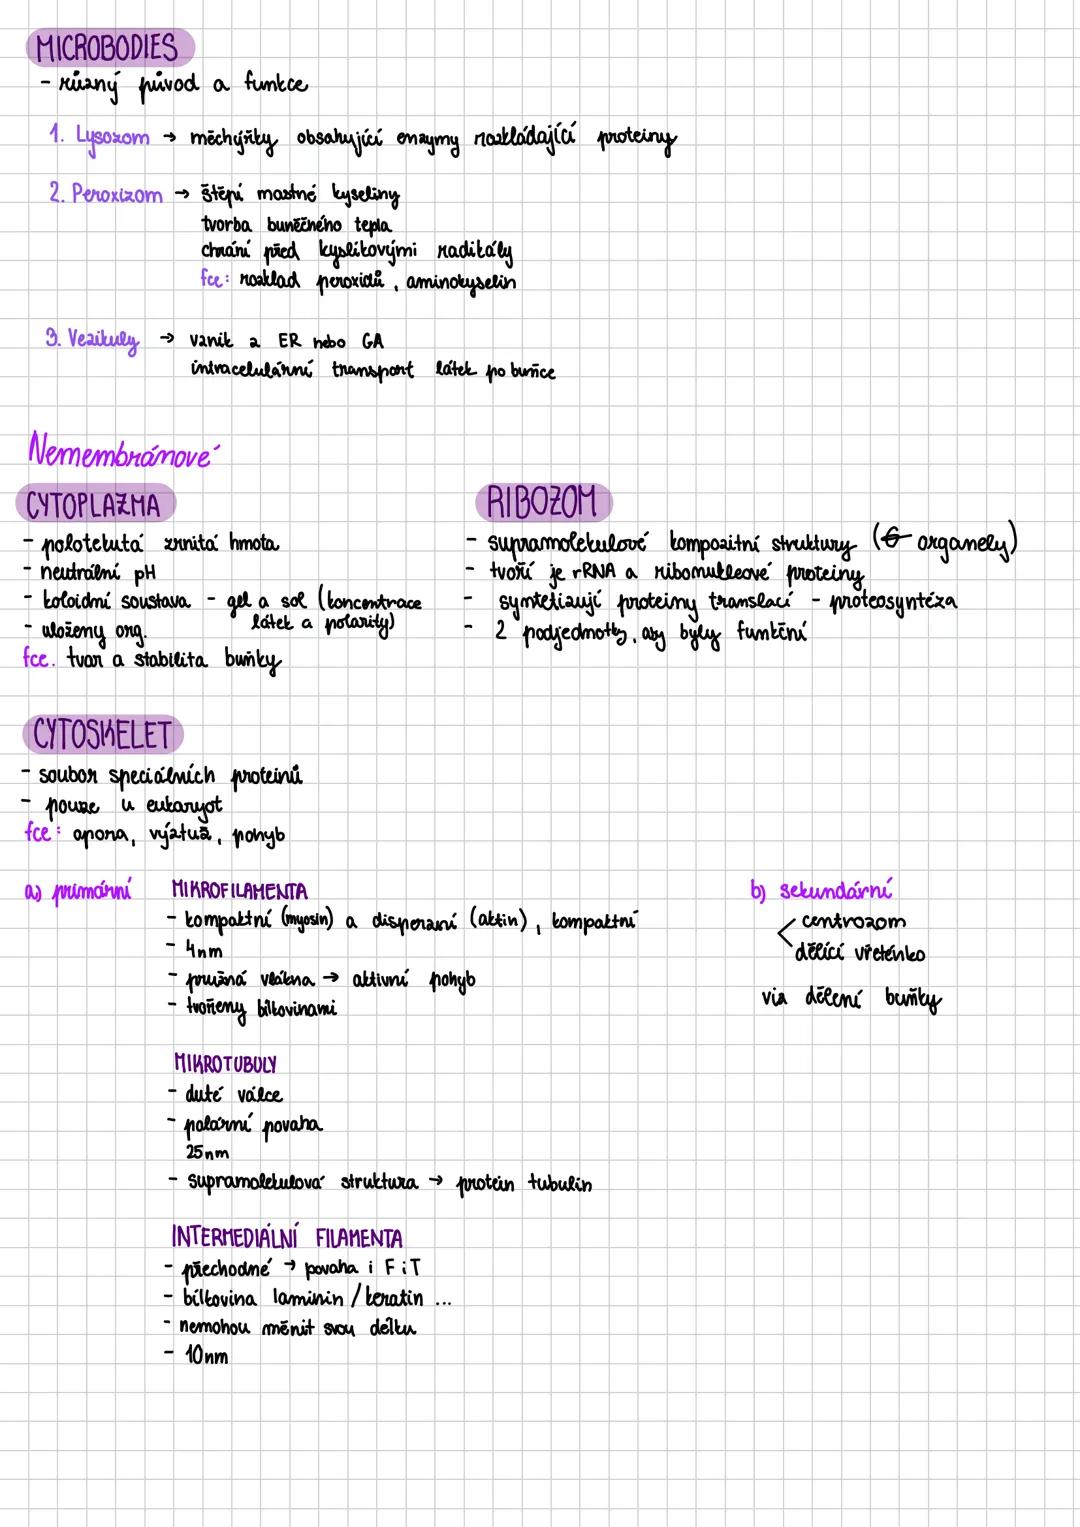 MICROBODIES
- různý původ a funkce
1. Lysozom → měchýřky obsahující enzymy rozkládající proteiny
2. Peroxizom → štěpí mastné kyseliny
tvorba buněčného tepla
chrání před kyslíkovými radikály
fce: rozklad peroxidů, aminokyselin
3. Vezikuly → vznik z ER nebo GA
intracelulární transport látek po buňce
Nemembránové
CYTOPLAZMA
- polotekutá zrnitá hmota
- neutrální pH
- koloidní soustava - gel a sol (koncentrace
látek a polarity)
- uloženy org.
fce. tvar a stabilita buňky
RIBOZOM
- supramolekulové kompozitní struktury ( organely)
- tvoří je rRNA a ribonukleové proteiny
- syntetizují proteiny translací - proteosyntéza
- 2 podjednotky, aby byly funkční
CYTOSKELET
- soubor speciálních proteinů
- pouze u eukaryot
fce: opora, výztuž, pohyb
a) primární
MIKROFILAMENTA
- kompaktní (myosin) a disperzní (aktin), kompaktní
- 4nm
- pružná vlákna → aktivní pohyb
- tvořeny bílkovinami
MIKROTUBULY
- duté válce
- polární povaha
25nm
- supramolekulová struktura → protein tubulin
INTERMEDIÁLNÍ FILAMENTA
- přechodné → povaha i F i T
- bílkovina laminin / keratin ...
- nemohou měnit svou délku
- 10nm
b) sekundární
centrozom
dělící vřeténko
via dělení buňky